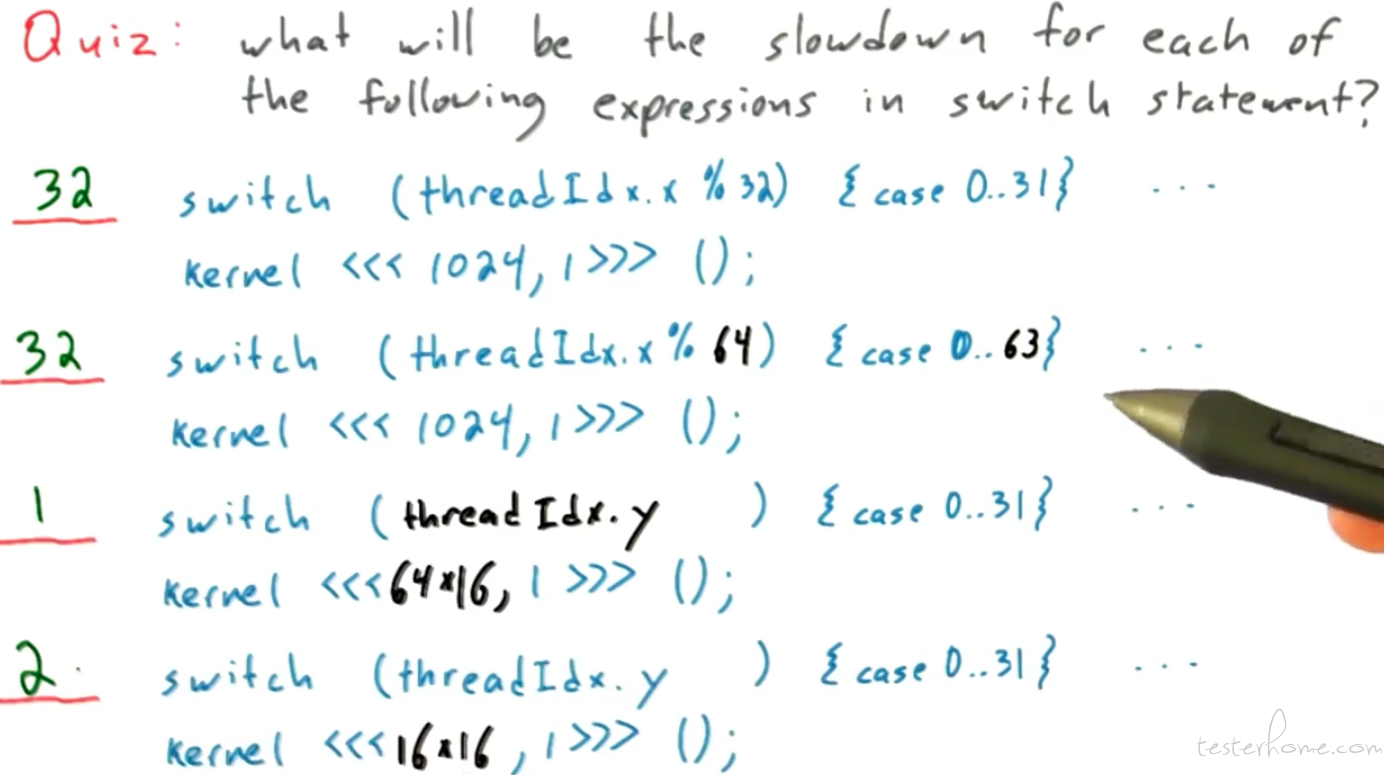 Quiz: what will be the slowdown for each of
the following expressions in switch statement?
32 switch (threadIdx.x % 32) { case 0..31} ...
kernel <<< 1024, 1 >>> ();
32 switch (threadIdx.x % 64) { case 0.. 63} ...
kernel <<< 1024, 1 >>> ();
1 switch ( threadIdx.y ) { case 0..31} ...
kernel <<< 64*16, 1 >>> ();
2 switch (threadIdx.y ) { case 0..31} ...
kernel <<< 16*16, 1 >>> ();
testerhome.com